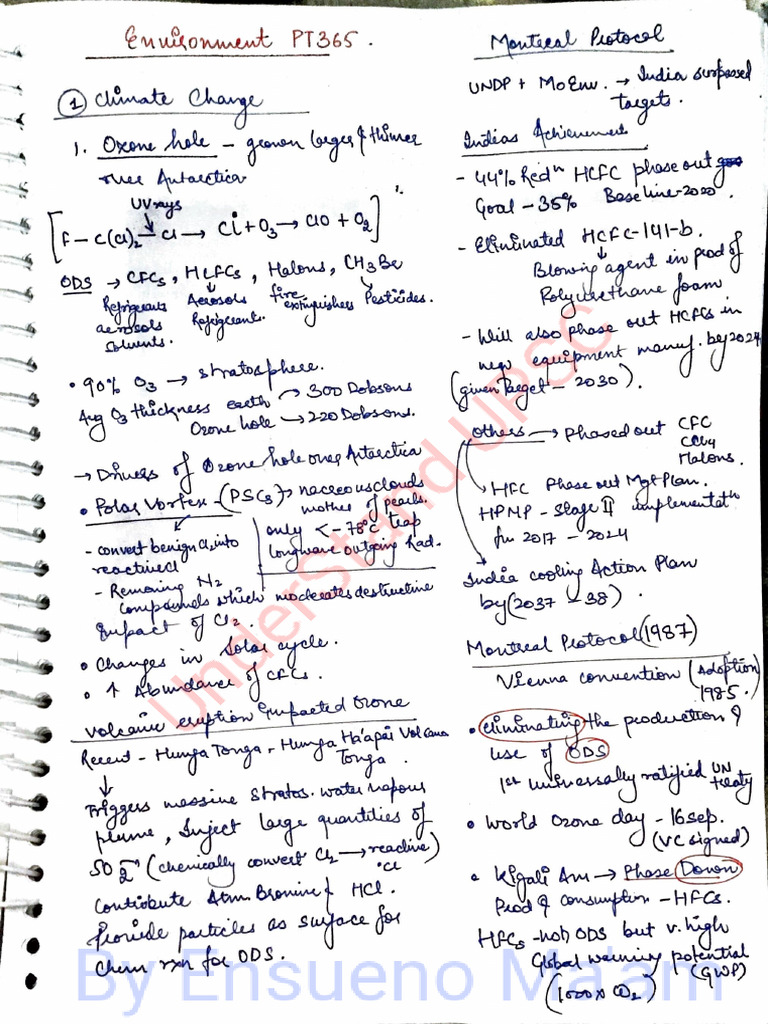 Environment PT365.
① Climate Change
1. Ozone hole – grown larger & thinner
over Antarctica
UV rays
[F – C(Cl)2 → Cl → Cl + O3 → ClO + O2]
ODS → CFCs, HCFCs, Halons, CH3Br
Refrigerants Aerosols fire extinguishers Pesticides.
aerosols Refrigerant.
solvents.
• 90% O3 → stratosphere.
Avg O3 thickness earth → 300 Dobsons
Ozone hole → 220 Dobsons.
→ Drivers of Ozone hole over Antarctica
• Polar Vortex – (PSCs) → nacreous clouds
mother of pearls.
only < -78°C temp
longwave outgoing Rad.
- convert benign Cl2 into
reactived
- Removing N2
compounds which moderates destructive
impact of Cl2.
• Changes in Solar cycle.
• ↑ Abundance of CFCs.
Volcanic eruption impacted Ozone
Recent – Hunga Tonga – Hunga Ha'apai Volcano
Tonga.
↓
Triggers massive Stratos. water vapour
plume, Inject large quantities of
SO2 (chemically convert Cl2 → reactive)
Cl
contribute Atm. Bromine & HCl.
Provide particles as surface for
chem rxn for ODS.
Montreal Protocol
UNDP + MoEnv. → India surpassed
targets.
Indias Achievement
- 44% Redn HCFC phase out
Goal – 35% Baseline-2020.
- Eliminated HCFC-141-b.
Blowing agent in prod of
Polyurethane foam
- Will also phase out HCFCs in
new equipment manuf. by 2024
(given Target – 2030).
others → Phased out CFC
CCl4
Halons.
HFC Phase out Mgt Plan.
HPMP – Stage II implementatn
for 2017 – 2024
India cooling Action Plan
by (2037 – 38).
Montreal Protocol (1987)
Vienna convention (Adoption)
1985.
• eliminating the production &
use of ODS
1st universally ratified UN
treaty
• World Ozone day – 16 sep.
(VC signed)
• Kigali Am → Phase Down
Prod & consumption – HFCs.
HFCs – not ODS but v. high
Global warming potential
(GWP)
(1000 x CO2)
UnderStand UPSC
By Ensueno Ma'am